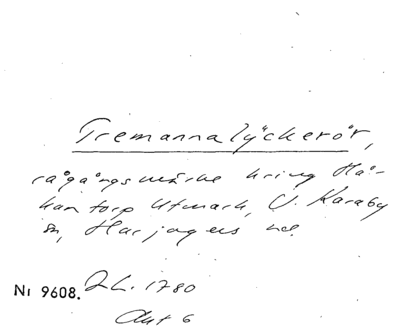 Tremannalyckerör,
rågångsmärke kring Hå-
kantorp Utmark, V. Karaby
sn, Harjagers hd.
Nr 9608. Lh. 1780
Akt 6